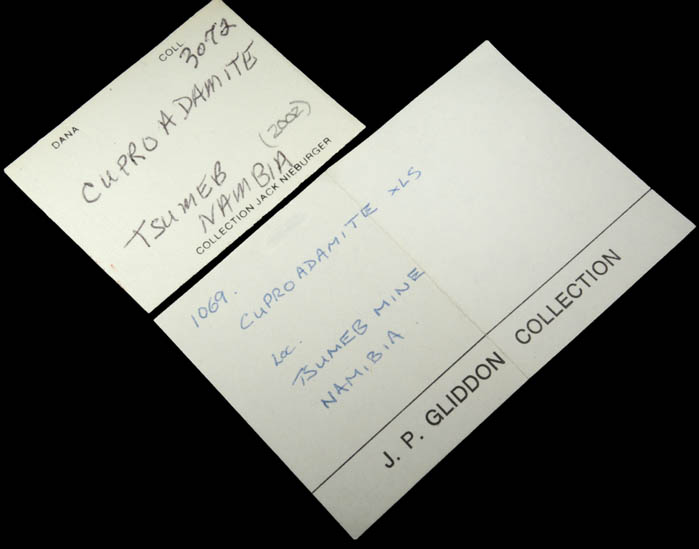 DANA COLL 3072
CUPROADAMITE
TSUMEB (2002)
NAMBIA
COLLECTION JACK NIEBURGER
1069.
CUPROADAMITE XLS
Loc.
TSUMEB MINE
NAMIBIA
J. P. GLIDDON COLLECTION